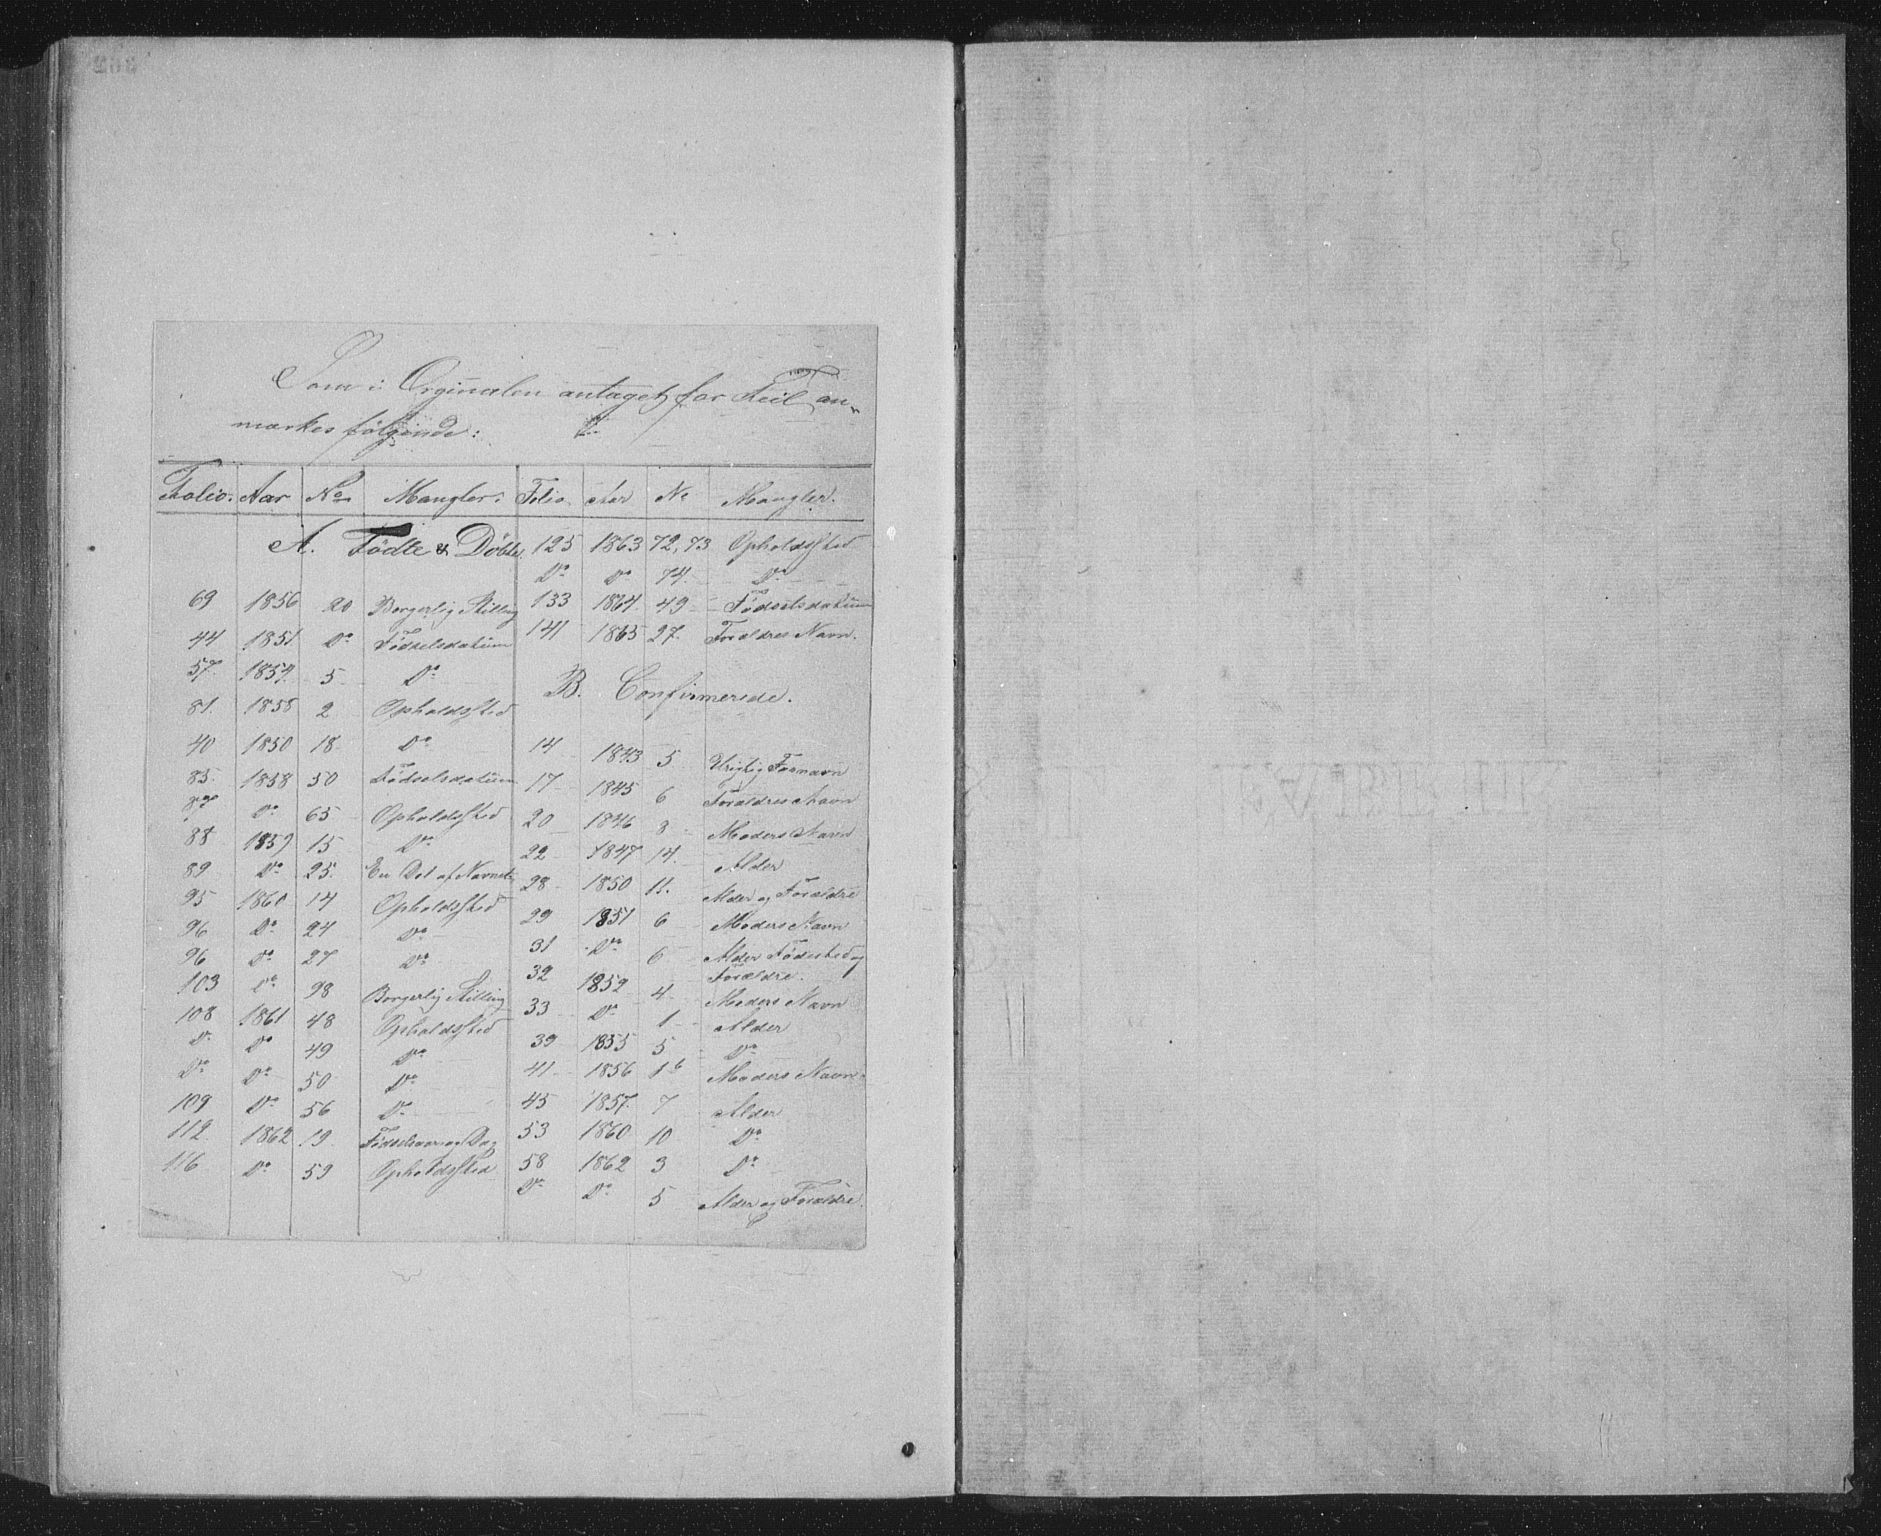 Som i Orginalen antaget for Feil an-
mærkes følgende:
Folio. Aar No Mangler.
A. Fødte & Døbte
69 1856 20 Borgerlig Stilling
44 1851 Do Fødselsdatum
57 1854 5 Do
81. 1858 2 Opholdssted
40 1850 18 Do
85. 1858 50 Fødselsdatum
87 Do 65 Opholdssted
88 1859 15 Do
89 Do 25. En Del af Navnet
95 1860 14 Opholdssted
96 Do 24 Do
96 Do 27 Do
103 Do 98 Borgerlig Stilling
108 1861 48 Opholdssted
Do Do 49 Do
Do Do 50 Do
109 Do 56 Do
112. 1862 19. Fødselsaar og Dag
116 Do 59 Opholdssted
Folio Aar No Mangler.
125 1863 72, 73 Opholdssted
Do Do 74. Do
133 1864. 49 Fødselsdatum
141 1865 27. Forældres Navn.
B. Confirmerede.
14 1843 5 Urigtig Fornavn
17 1845 6 Forældres Navn
20 1846 8 Moders Navn
22 1847 14. Alder
28 1850 11. Alder og Forældre
29 1851 6 Moders Navn
31 Do 6 Alder Fødested og
Forældre.
32 1852 4 Moders Navn
33 Do 1 Alder
39 1855 5 Do
41 1856 16 Moders Navn
45 1857. 7 Alder
53 1860 10 Do
58 1862 3 Do
Do Do 5 Alder og Forældre.